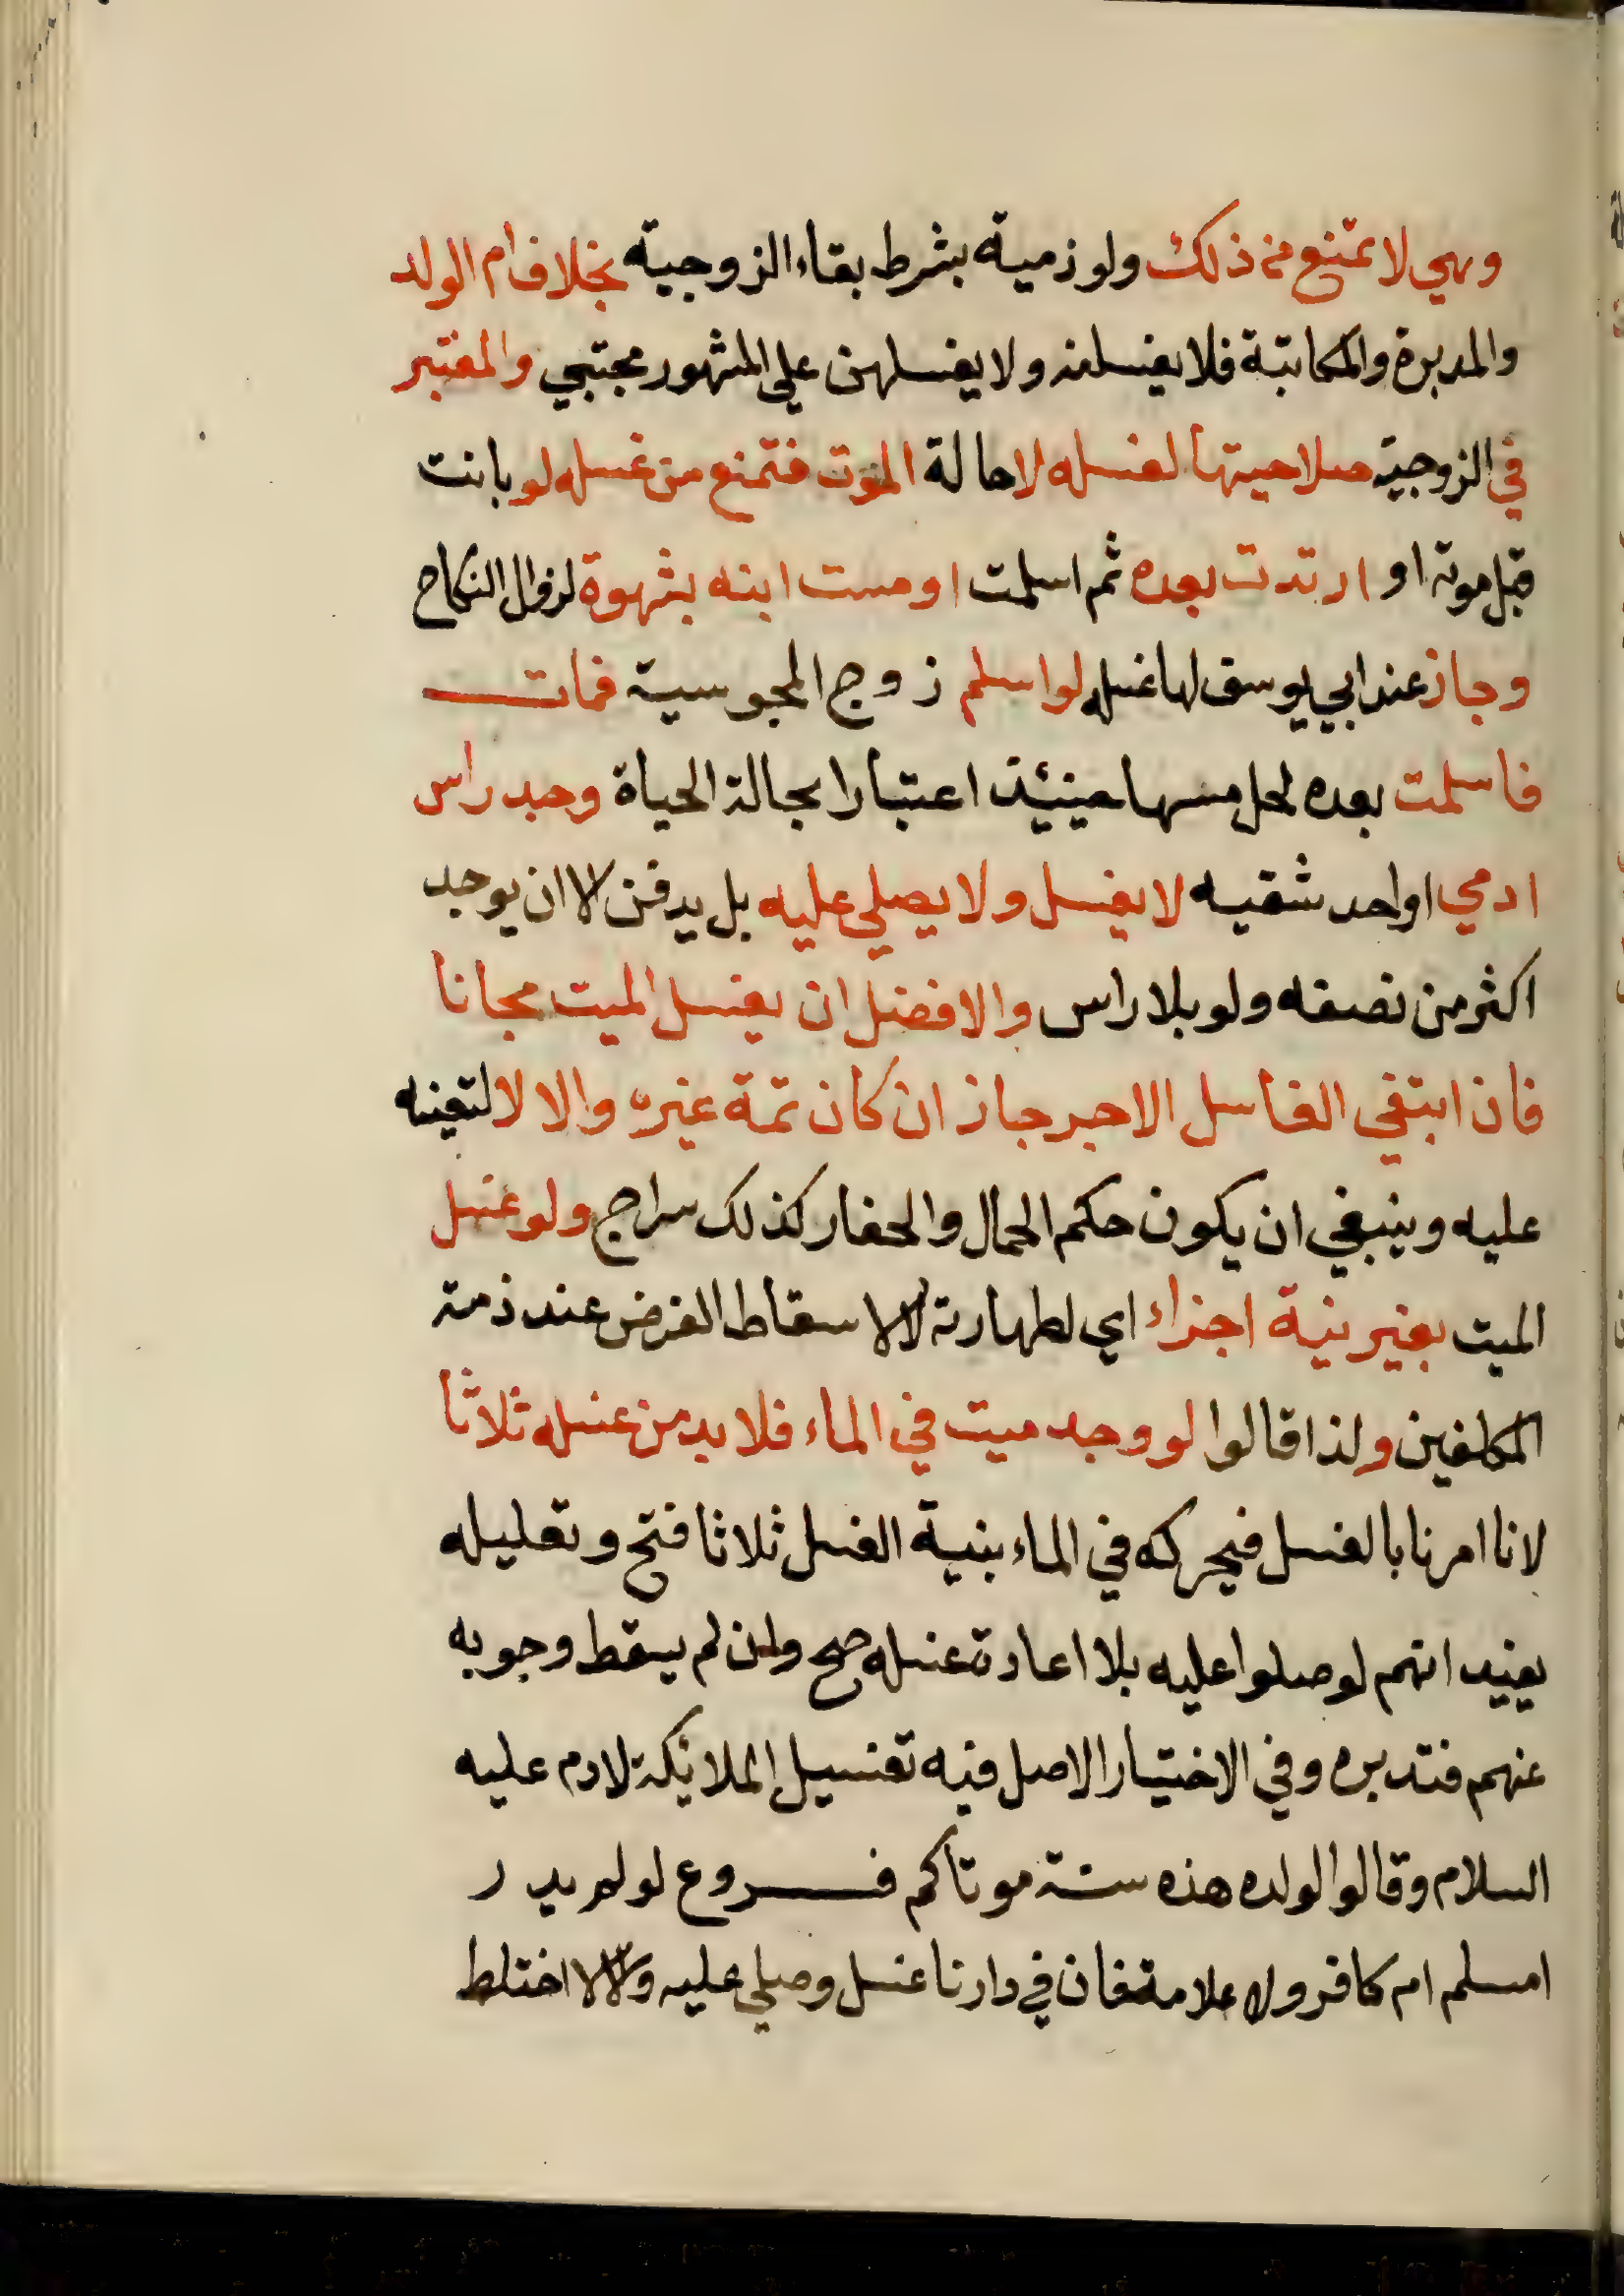 وهي لا تمتنع من ذلك ولو ذمية بشرط بقاء الزوجية بخلاف ام الولد
والمدبرة والمكاتبة فلا يغسلنه ولا يغسلهن علي المشهور مجتبي والمعتبر
في الزوجية صلاحيتها لغسله لا حالة الموت فتمنع من غسله لو بانت
قبل موته او ارتدت بعده ثم اسلمت او مست ابنه بشهوة لزوال النكاح
وجاز عند ابي يوسف لها غسله لو اسلم زوج المجوسية فمات
فاسلمت بعده لحل مسها حينئذ اعتبارا بحالة الحياة وجد راس
ادمي او احد شقيه لا يغسل ولا يصلي عليه بل يدفن الا ان يوجد
اكثر من نصفه ولو بلا راس والافضل ان يغسل الميت مجانا
فان ابتغي الغاسل الاجر جاز ان كان ثمة غيره والا لا لتعينه
عليه وينبغي ان يكون حكم الحمال والحفار كذلك سراج ولو غسل
الميت بغير نية اجزاء اي لطهارته لا لاسقاط الفرض عند ذمة
المكلفين ولذا قالوا لو وجد ميت في الماء فلا بد من غسله ثلاثا
لانا امرنا بالغسل فيحركه في الماء بنية الغسل ثلاثا فتح وتعليله
يفيد انهم لو صلوا عليه بلا اعادة غسله صح وان لم يسقط وجوبه
عنهم فتدبره وفي الاختيار الاصل فيه تغسيل الملائكة لادم عليه
السلام وقالوا لولده هذه سنة موتاكم فروع لو لم يدر
امسلم ام كافر ولا علامة فان في دارنا غسل وصلي عليه والا لا اختلط